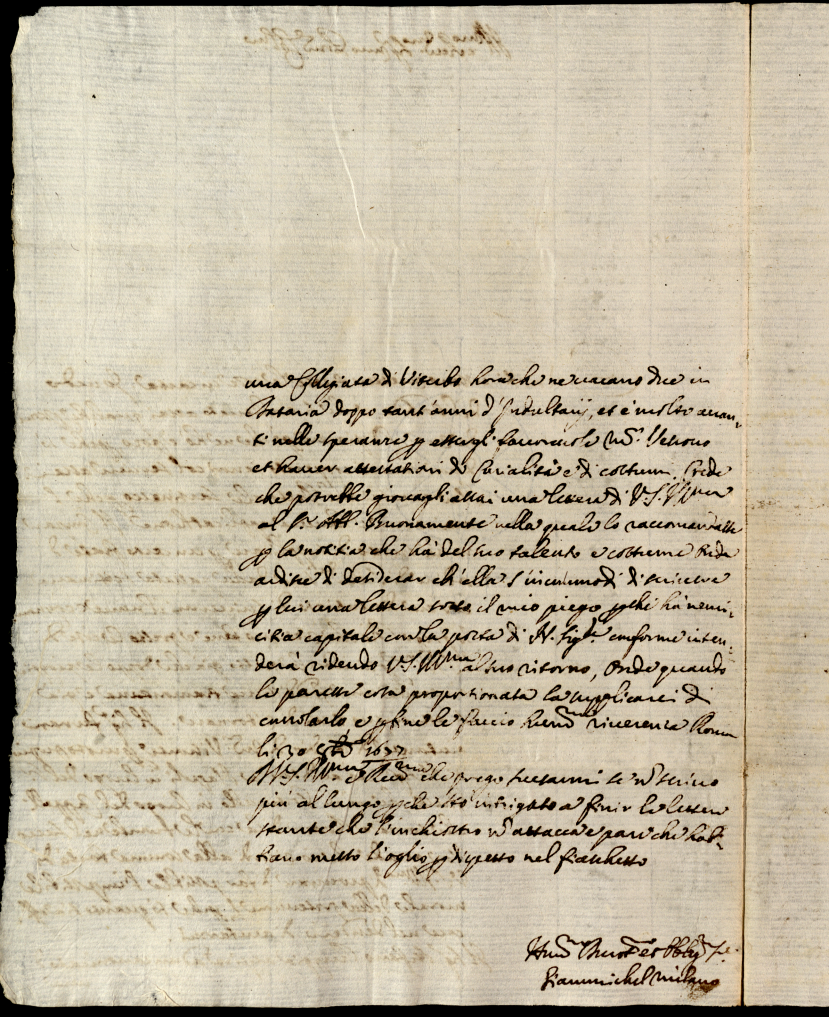 una Collegiata di Viterbo hora che ne vacano due in
Dataria doppo tant'anni d'Indultarij, et è molto avan-
ti nelle speranze p essergli favorevole Mr. Vescovo
et haver attestationi di Curialità e di costumi. Crede
che potrebbe giovargli assai una lettera di V.S. Illma
al Sr. Abb. Buonamente nella quale lo raccomandasse
p la notitia che ha del suo talento e costume
ardire di desiderar ch'ella s'incummodi di scrivere
p lui una lettera sotto il mio piego pche ha nemi-
citia capitale con la posta di conforme inten-
derà ridendo V.S. Illma al suo ritorno, Onde quando
le paresse cosa proportionata la supplicarei di
consolarlo e p fine le faccio humma riverenza Roma
li 30 8bre 1677
D V.S. Illma e Revma che prego scusarmi se nō scrivo
più al lungo pche sto intrigato a finir la lettera
stante che l'inchiostro nō attacca e pare che hab-
biano messo l'oglio p dispetto nel fiaschetto
Humo Devmo et Obblmo Se.
Giammichel Milano